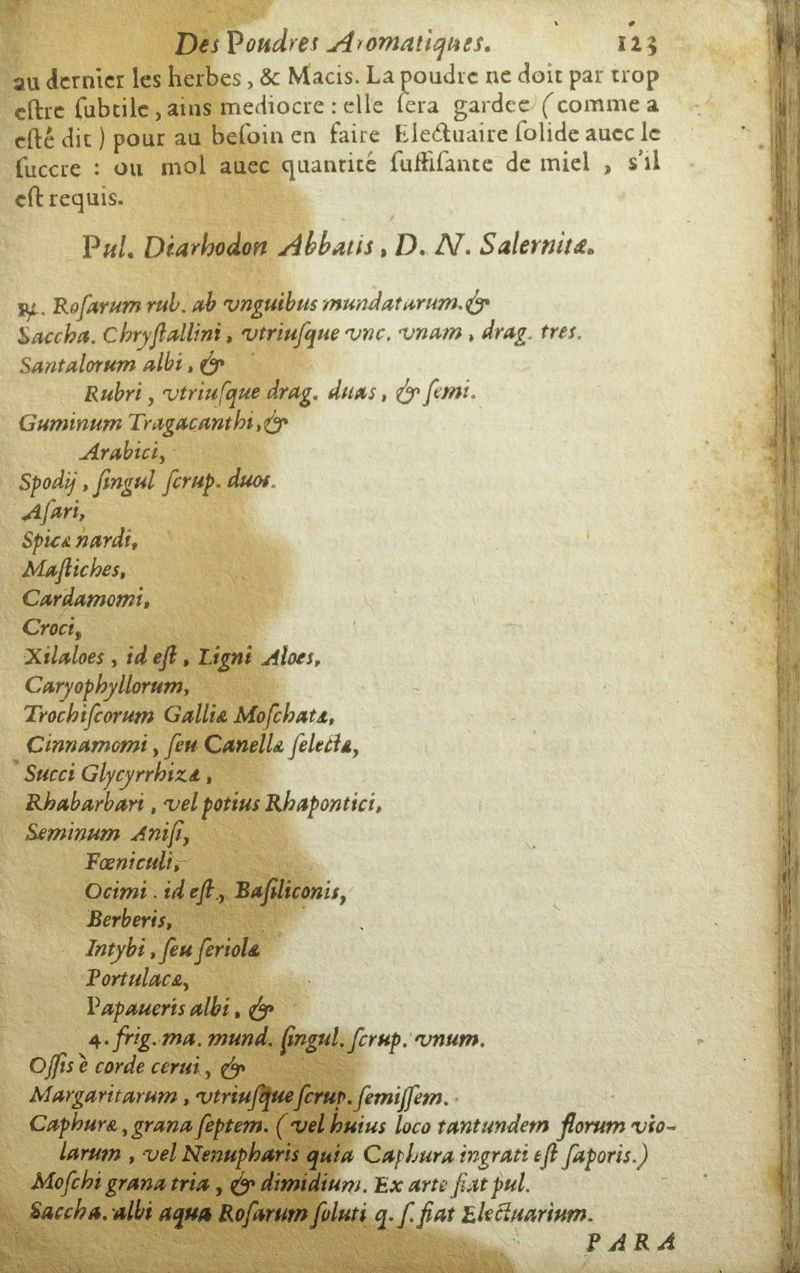 Des Poudres Aromatiques. 123
au dernier les herbes, & Macis. La poudre ne doit par trop
eſtre ſubtile, ains mediocre : elle ſera gardee (comme a
eſté dit) pour au beſoin en faire Electuaire ſolide auec le
ſuccre : ou mol auec quantité ſuffiſante de miel , s'il
eſt requis.
Pul. Diarhodon Abbatis, D. N. Salernitæ.
℞. Roſarum rub. ab vnguibus mundatarum. &
Saccha. Chryſtallini, vtriuſque vnc. vnam, drag. tres.
Santalorum albi, &
Rubri, vtriuſque drag. duas, & ſemi.
Guminum Tragacanthi, &
Arabici,
Spodij, ſingul ſcrup. duos.
Aſari,
Spicæ nardi,
Maſtiches,
Cardamomi,
Croci,
Xilaloes, id eſt, Ligni Aloes,
Caryophyllorum,
Trochiſcorum Galliæ Moſchatæ,
Cinnamomi, ſeu Canellæ ſelectæ,
Succi Glycyrrhizæ,
Rhabarbari, vel potius Rhapontici,
Seminum Aniſi,
Fœniculi,
Ocimi. id eſt, Baſiliconis,
Berberis,
Intybi, ſeu ſeriolæ
Portulacæ,
Papaueris albi, &
4. frig. ma. mund. ſingul. ſcrup. vnum.
Oſſis è corde cerui, &
Margaritarum, vtriuſque ſcrup. ſemiſſem.
Caphuræ, grana ſeptem. (vel huius loco tantundem florum vio-
larum, vel Nenupharis quia Caphura ingrati eſt ſaporis.)
Moſchi grana tria, & dimidium. Ex arte fiat pul.
Saccha. albi aqua Roſarum ſoluti q. ſ. fiat Electuarium.
PARA